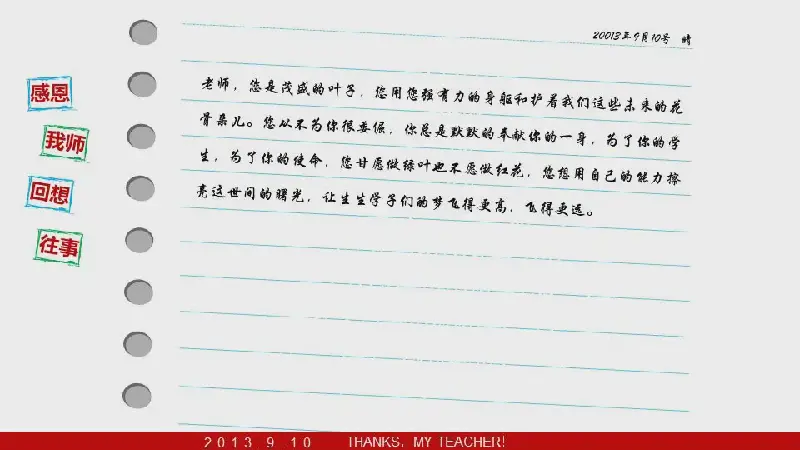 20013年9月10号 晴
感恩
我师
回想
往事
老师，您是茂盛的叶子，您用您强有力的身躯和护着我们这些未来的花
骨朵儿。您从不为你很委倨，你总是默默的奉献你的一身，为了你的学
生，为了你的使命，您甘愿做绿叶也不愿做红花，您想用自己的能力擦
亮这世间的曙光，让生生学子们的梦飞得更高，飞得更远。
2013 9 10 THANKS，MY TEACHER!